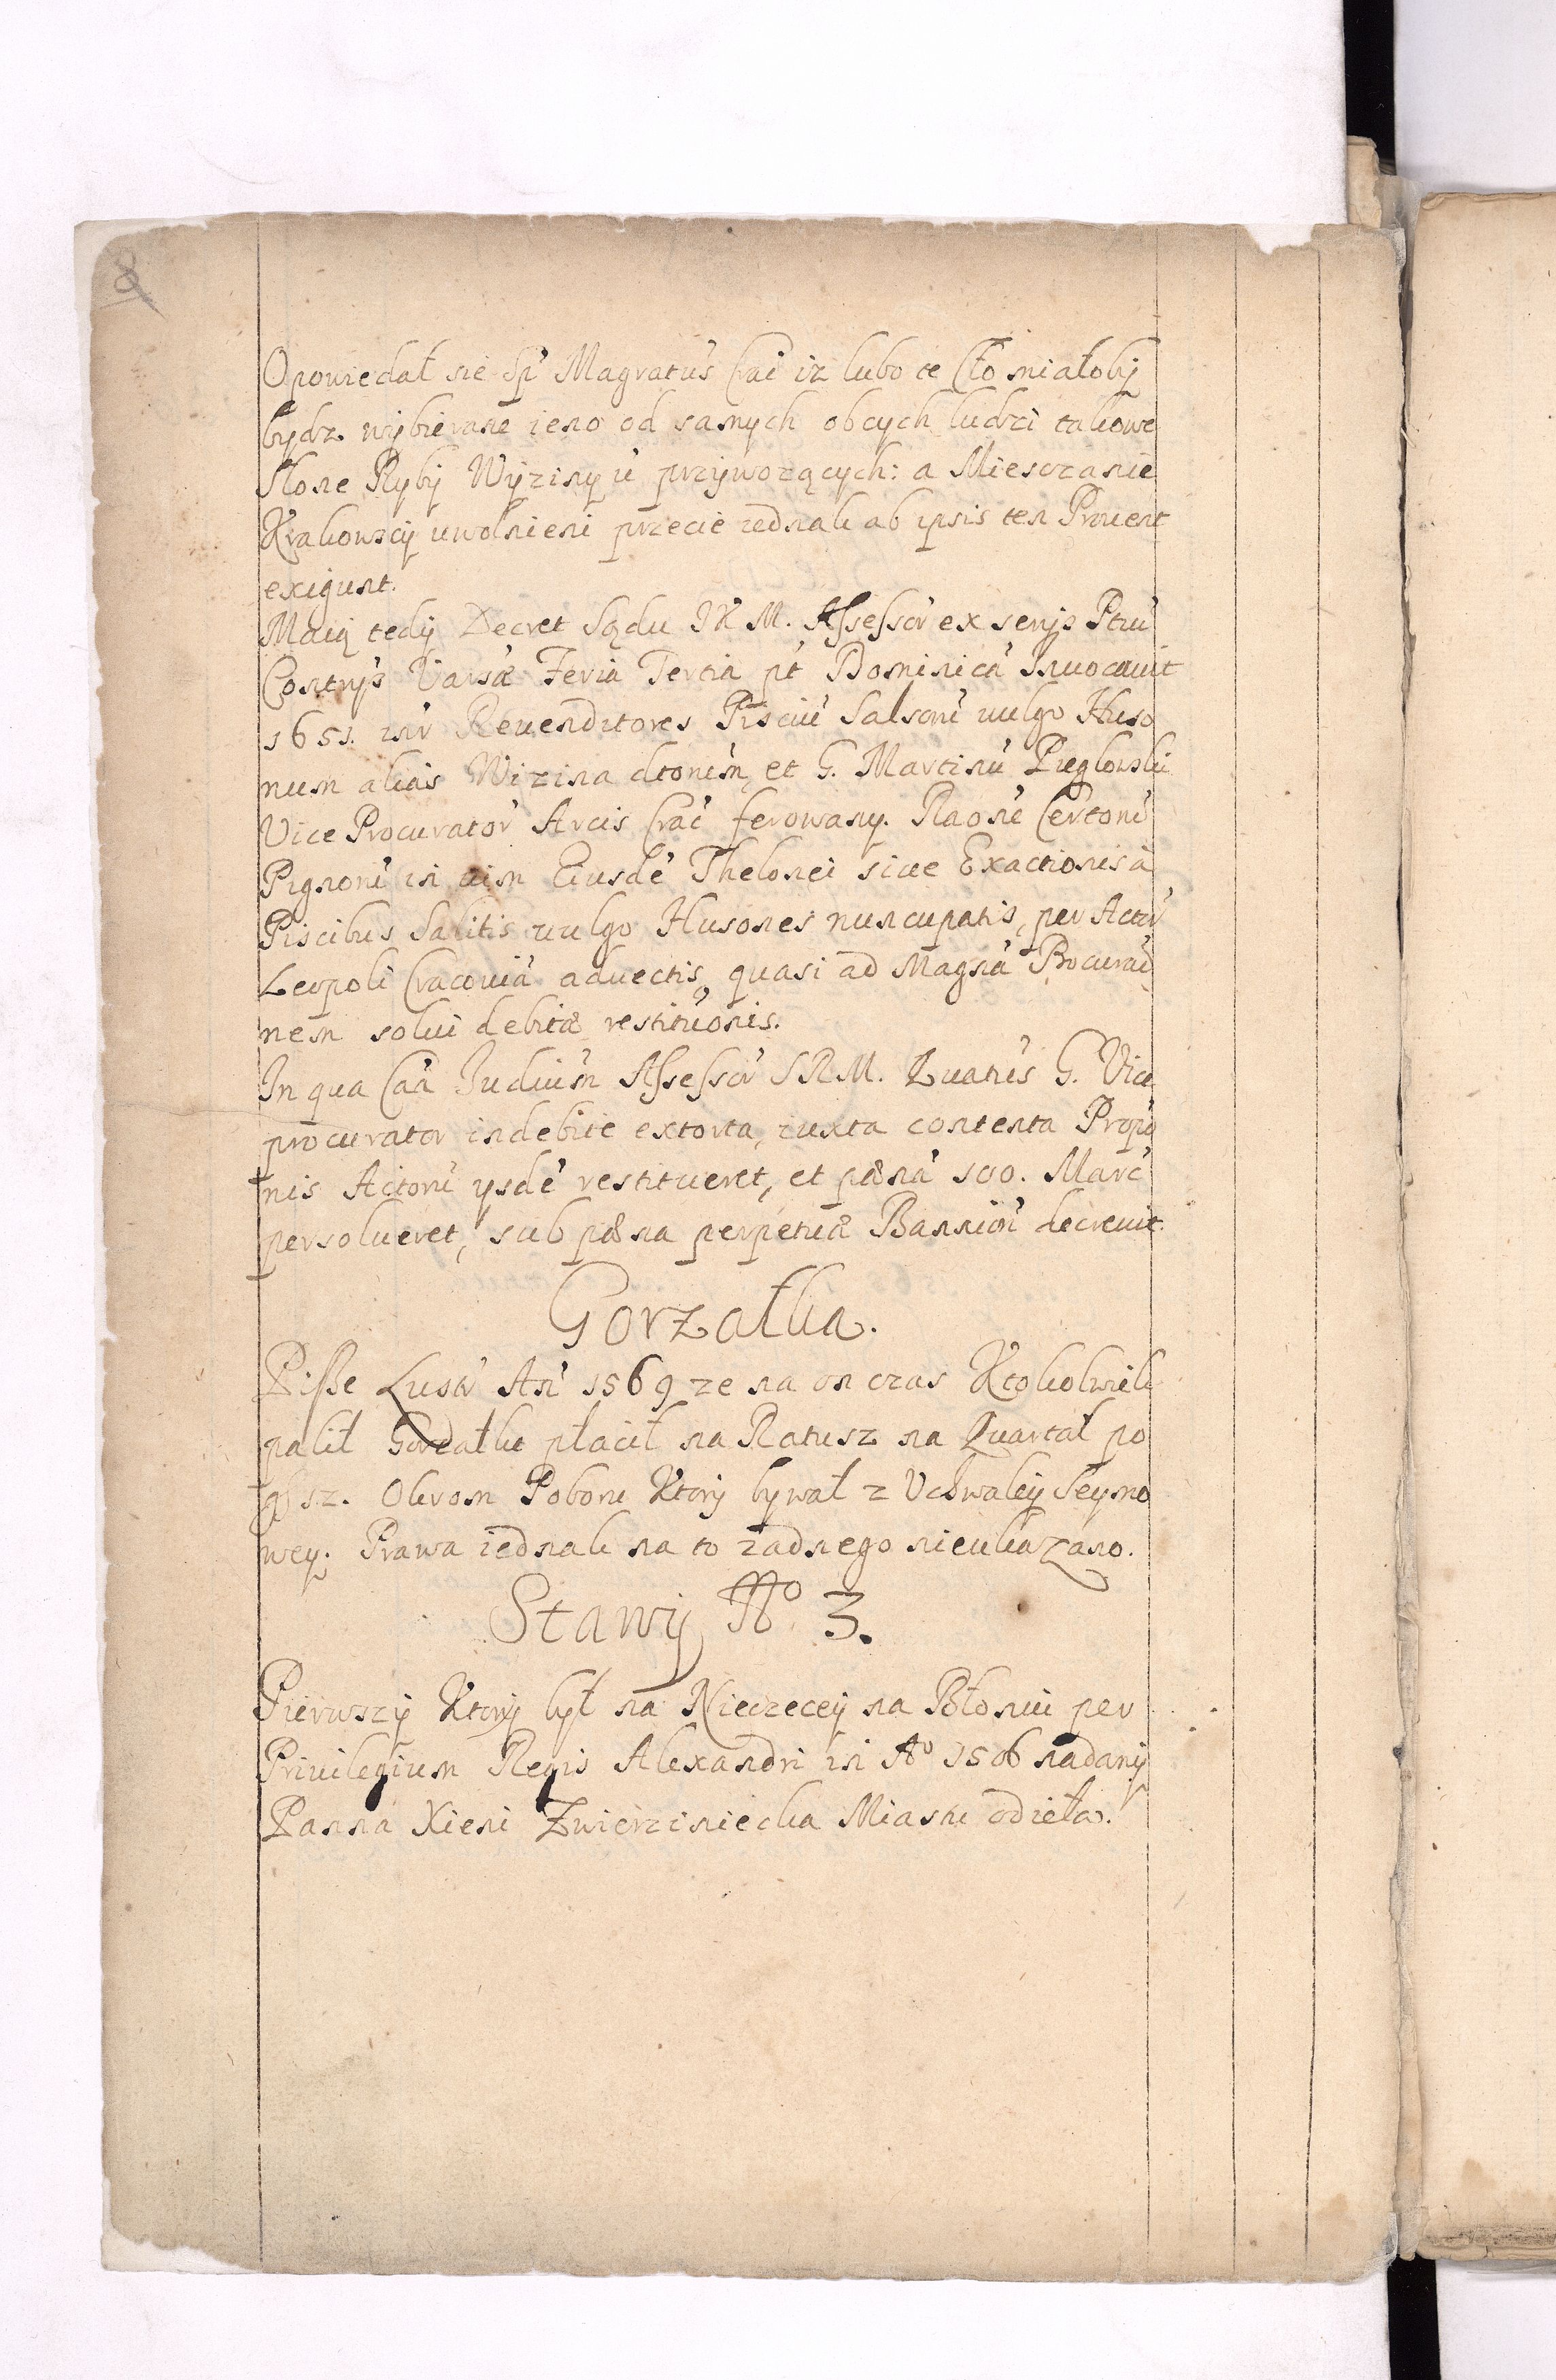 8
Opowiedał sie Sp' Magratus Crac' iz lubo te Cło miałobÿ
bydz wÿbierane ieno od samych obcych ludzi takowe
słone Rybÿ Wÿzinÿ u przÿwozących: a Miesczanie
Krakowscÿ uwolnieni przecie iednak ab ipsis ten Prouent
exigunt.
Maią tedÿ Decret Sądu JKM. Assessor' ex serÿs
Varsa' Feria Tertia pt' Dominica' Inuocauit
1651. intr' Reuenditores Pisciu' Salsoru' uulgo Huso
num alias Wizina et G. Martinu' Pieglowski
Vice Procurator' Arcis Crac' ferowany. Raone' Certoru'
Pignoru' in uim Eiusde' Thelonei siue Exactionis a
Piscibus Salitis uulgo Husones nuncupatis, per Actor'
Leopoli Cracouia' aduectis, quasi ad Magna' Procurao
nem solui debita restituonis.
In qua Caa' Judiuim Assessor' SRM. G. Vice
procurator indebite extorta, iuxta contenta Propo
nis Actoru' ysde' restitueret, et pæna' 100. Marc'
persolueret, sub pæna perpetuæ decreuit
Gorzałka.
Pisze Lustr' An' 1569 ze na on czas Ktokolwiek
palił Gorzałke płacił na Ratusz na Quartał po
sz. Okrom Poboru Ktorÿ bywał z Uchwałÿ Seymo
wey. Prawa iednak na to zadnego nieukazano.
Stawÿ No 3.
Pierwszÿ Ktorÿ był na Nieczeceÿ na Błoniu per
Priuilegium Regis Alexandri in Ao 1506 nadanÿ
Panna Xieni Zwierziniecka Miastu odieła.